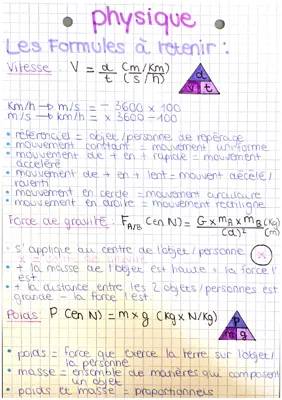 physique
Les Formules à retenir :
Vitesse : V = d/t (m/km) / (s/h)
d
v t
km/h → m/s = ÷ 3600 x 100
m/s → km/h = x 3600 ÷ 100
• référenciel = objet/personne de repérage
• mouvement constant = mouvement uniforme
• mouvement de + en + rapide = mouvement
accéléré
• mouvement de + en + lent = mouvet décéléré/
ralenti
• mouvement en cercle = mouvement circulaire
• mouvement en droite = mouvement rectiligne
Force de gravité : F A/B (en N) = G x mA x mB (kg) / (d)² (m)
• s'applique au centre de l'objet/personne
x
• + la masse de l'objet est haute + la force l'
est
• + la distance entre les 2 objets/personnes est
grande - la force l'est.
Poids : P (en N) = m x g (kg x N/kg)
P
m g
• poids = force que exerce la terre sur l'objet/
la personne
• masse = ensemble de matières qui composent
un objet
• poids et masse = proportionnels